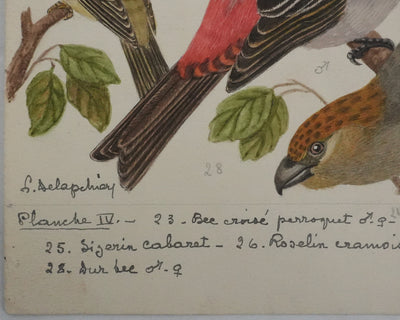 ♂
28
24
L. Delapchier
Planche IV. — 23 - Bec croisé perroquet ♂. ♀ -
25. Sizerin cabaret - 26. Roselin cramois
28. Dur bec ♂. ♀